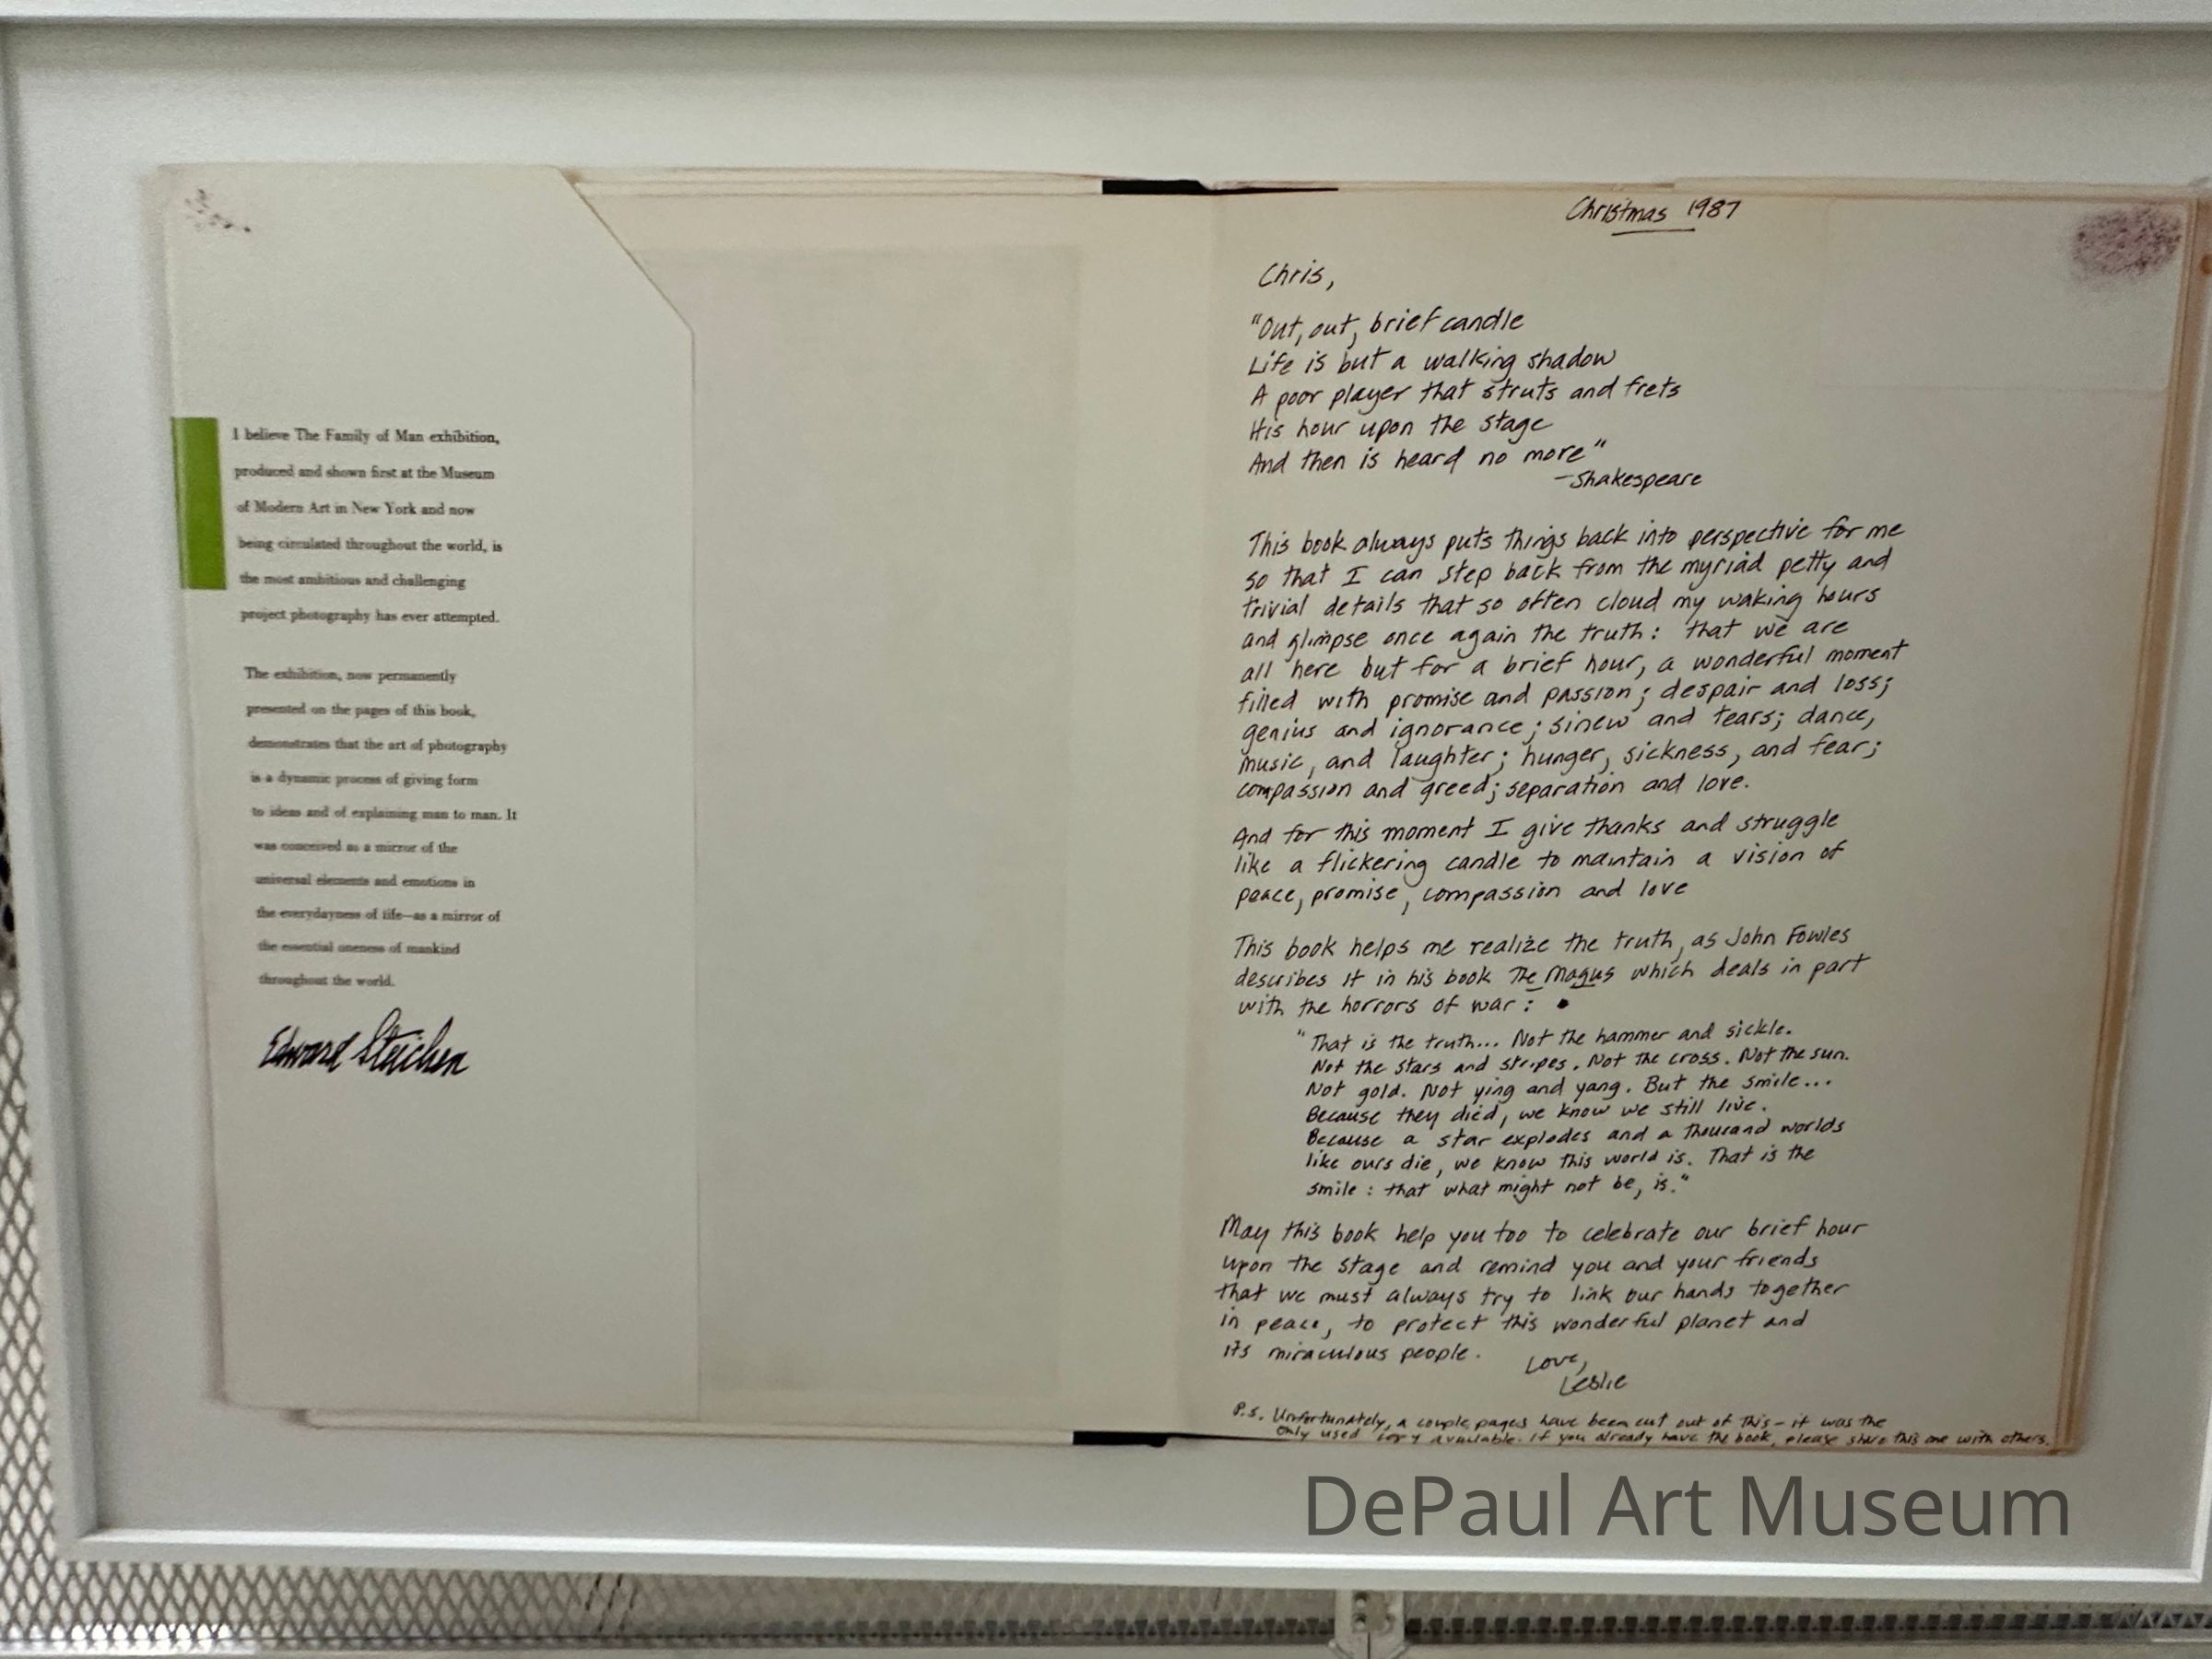 I believe The Family of Man exhibition,
produced and shown first at the Museum
of Modern Art in New York and now
being circulated throughout the world, is
the most ambitious and challenging
project photography has ever attempted.
The exhibition, now permanently
presented on the pages of this book,
demonstrates that the art of photography
is a dynamic process of giving form
to ideas and of explaining man to man. It
was conceived as a mirror of the
universal elements and emotions in
the everydayness of life—as a mirror of
the essential oneness of mankind
throughout the world.
Edward Steichen
Christmas 1987
Chris,
"Out, out, brief candle
Life is but a walking shadow
A poor player that struts and frets
His hour upon the stage
And then is heard no more"
-Shakespeare
This book always puts things back into perspective for me
so that I can step back from the myriad petty and
trivial details that so often cloud my waking hours
and glimpse once again the truth: that we are
all here but for a brief hour, a wonderful moment
filled with promise and passion; despair and loss;
genius and ignorance; sinew and tears; dance,
music, and laughter; hunger, sickness, and fear;
compassion and greed; separation and love.
And for this moment I give thanks and struggle
like a flickering candle to maintain a vision of
peace, promise, compassion and love
This book helps me realize the truth, as John Fowles
describes it in his book The Magus which deals in part
with the horrors of war:
"That is the truth... Not the hammer and sickle.
Not the stars and stripes. Not the cross. Not the sun.
Not gold. Not ying and yang. But the smile...
Because they died, we know we still live.
Because a star explodes and a thousand worlds
like ours die, we know this world is. That is the
smile: that what might not be, is."
May this book help you too to celebrate our brief hour
upon the stage and remind you and your friends
that we must always try to link our hands together
in peace, to protect this wonderful planet and
its miraculous people.
Love,
Leslie
P.S. Unfortunately, a couple pages have been cut out of this - it was the
only used copy available. If you already have the book, please share this one with others.
DePaul Art Museum